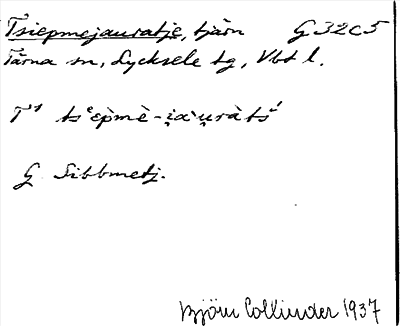 Tsiepmejauratje, tjärn G 32 C 5
Tärna sn, Lycksele lg, Vbt l.
T¹ tsᵉèpmè-i̯àu̯ràtś
G Sibbmetj.
Björn Collinder 1937